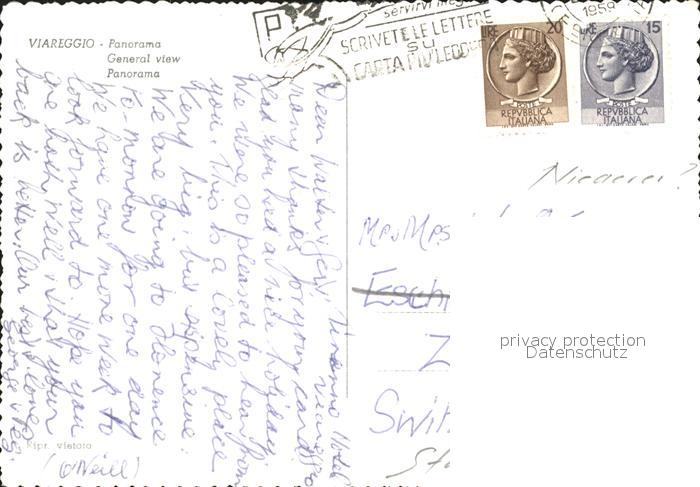 VIAREGGIO - Panorama
General view
Panorama
SCRIVETE LE LETTERE
SU
CARTA PIU LEGG
1959
LIRE 20
POSTE
REPVBBLICA
ITALIANA
LIRE 15
POSTE
REPVBBLICA
ITALIANA
Hotel
Viareggio
Dear Walter &
many thanks for your card
glad you had a nice holiday.
We were so pleased to hear from
you. This is a lovely place
Very big, but expensive.
We are going to Florence
to-morrow for one day
We have one more week to
look forward to. Hope you
are both well & that your
back is better. Our best love
George &
(O'Neill)
Mr & Mrs
Z
Swit
privacy protection
Datenschutz
Ripr. vietata